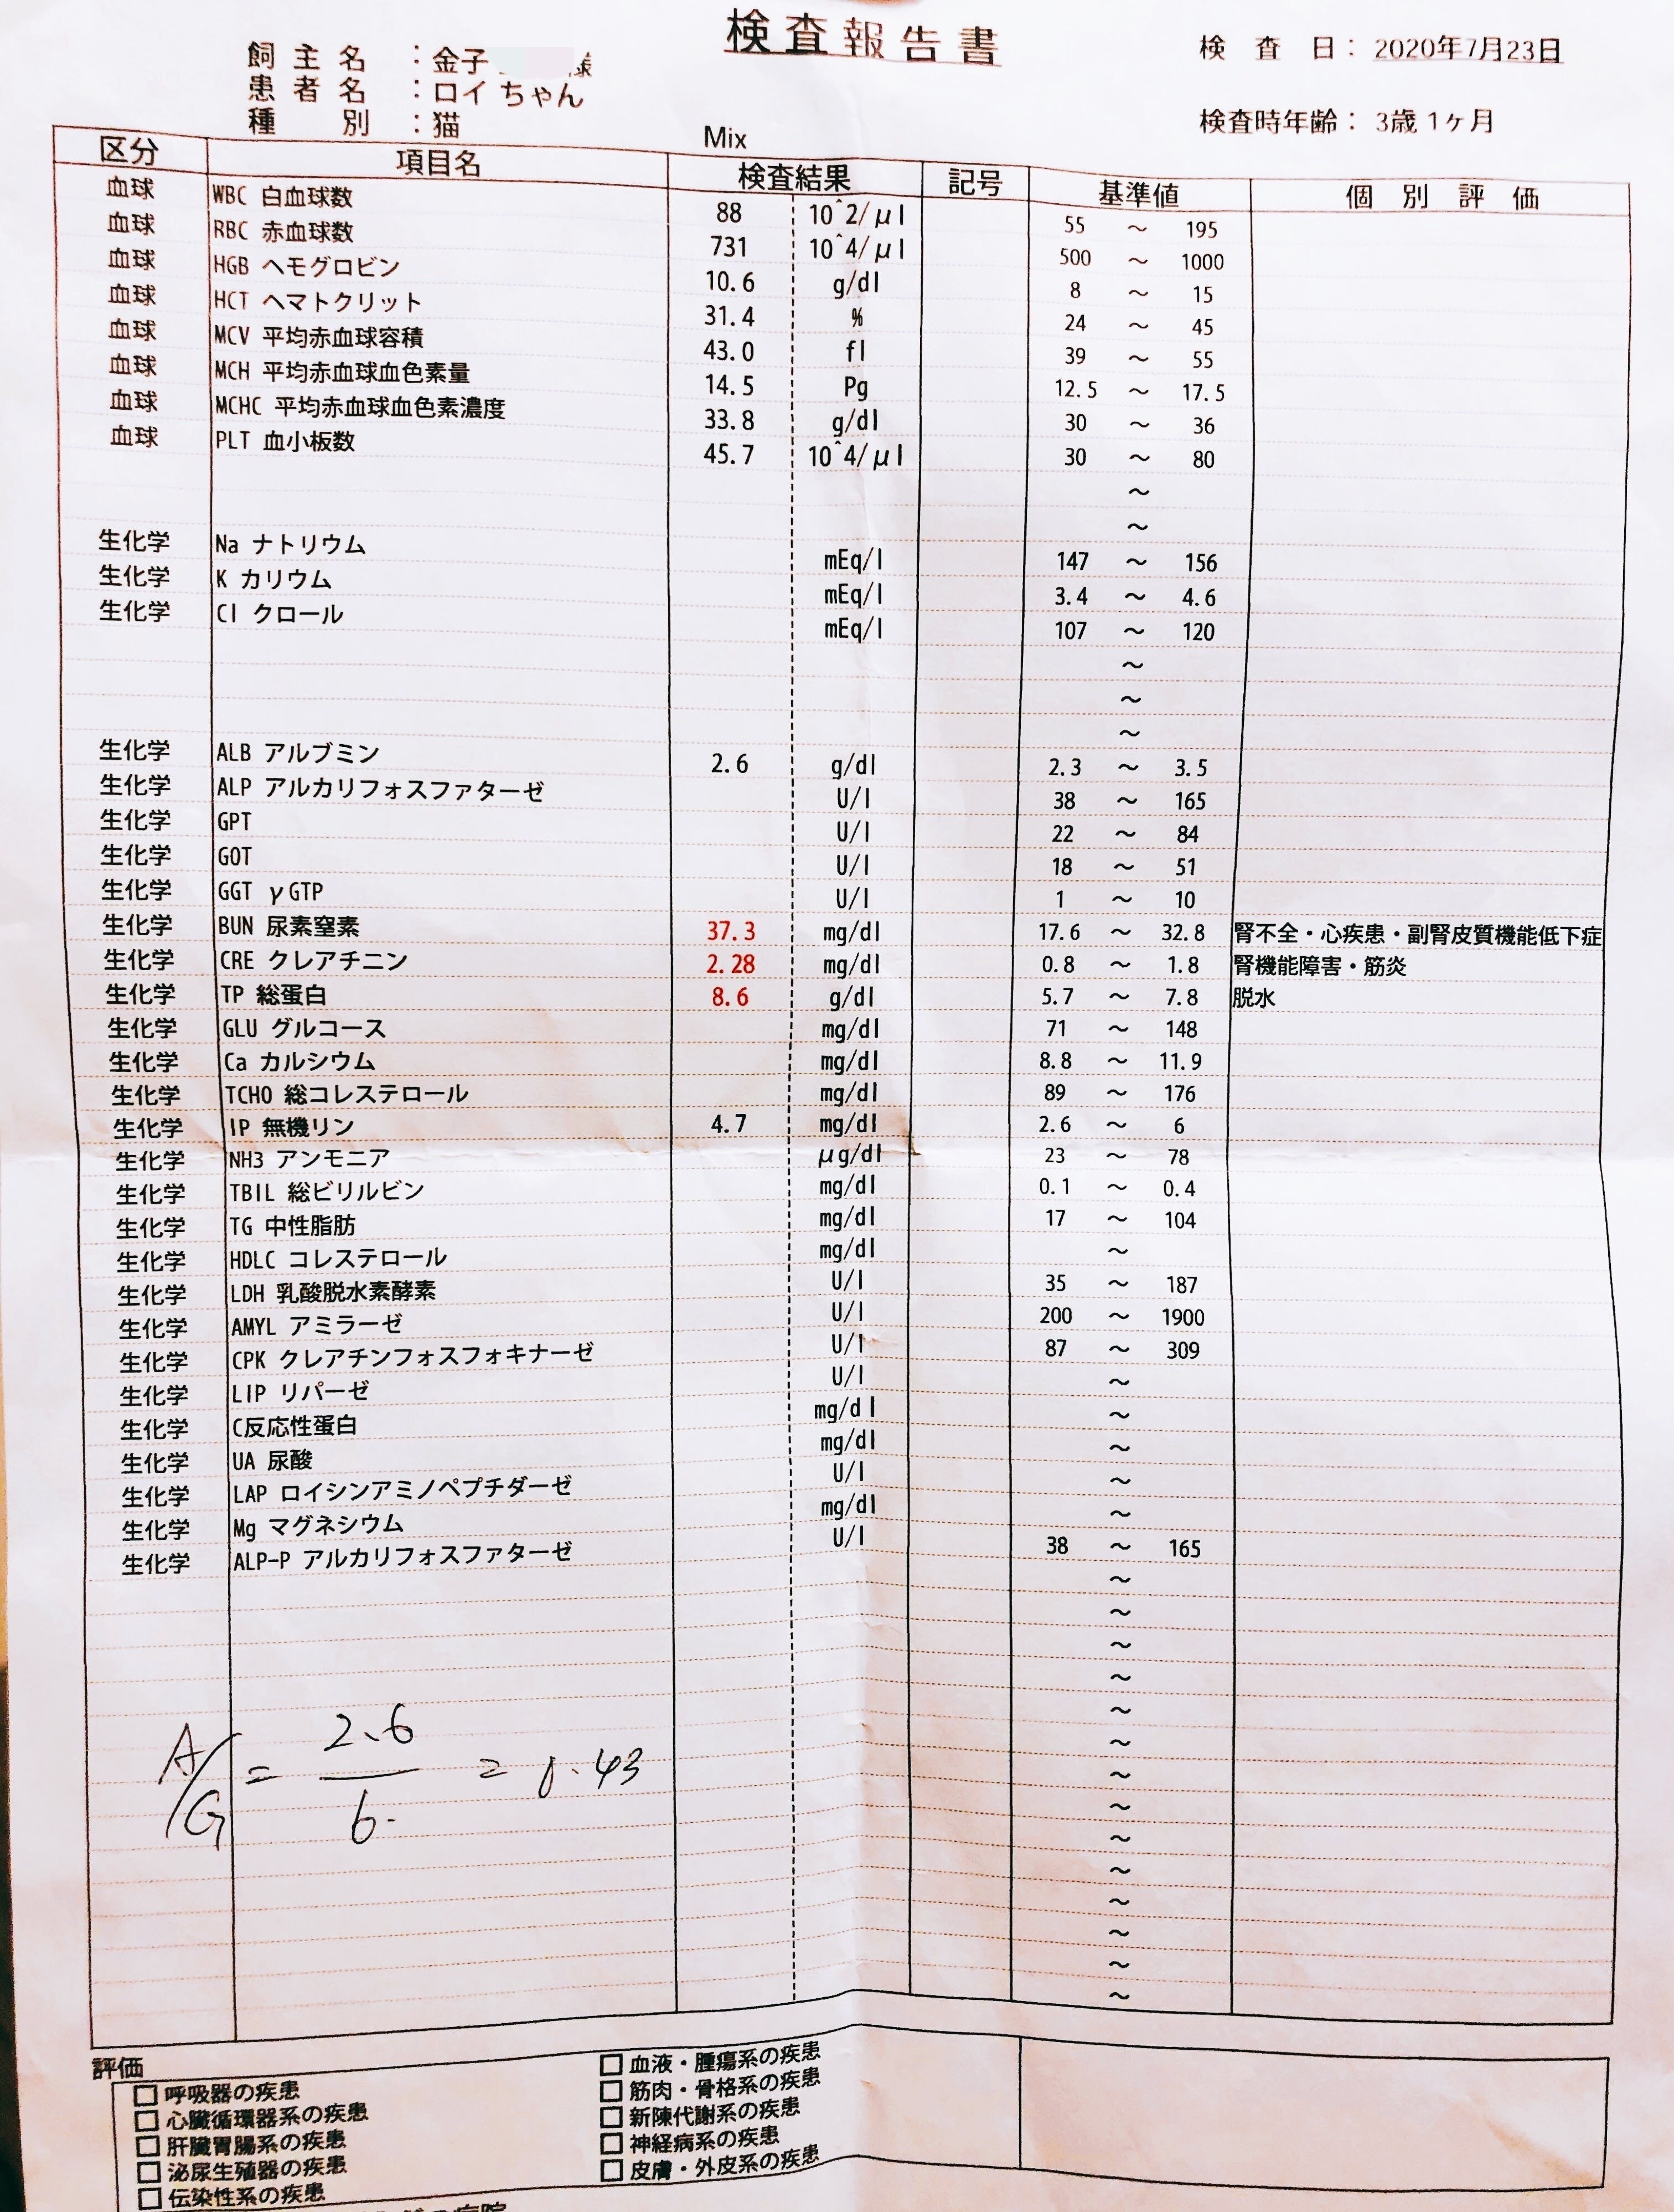 検査報告書
飼主名 : 金子 様
検査日: 2020年7月23日
患者名 : ロイちゃん
種別 : 猫 Mix
検査時年齢: 3歳1ヶ月
区分 項目名 検査結果 記号 基準値 個別評価
血球 WBC 白血球数 88 10^2/μl 55 ～ 195
血球 RBC 赤血球数 731 10^4/μl 500 ～ 1000
血球 HGB ヘモグロビン 10.6 g/dl 8 ～ 15
血球 HCT ヘマトクリット 31.4 % 24 ～ 45
血球 MCV 平均赤血球容積 43.0 fl 39 ～ 55
血球 MCH 平均赤血球血色素量 14.5 Pg 12.5 ～ 17.5
血球 MCHC 平均赤血球血色素濃度 33.8 g/dl 30 ～ 36
血球 PLT 血小板数 45.7 10^4/μl 30 ～ 80
～
～
生化学 Na ナトリウム mEq/l 147 ～ 156
生化学 K カリウム mEq/l 3.4 ～ 4.6
生化学 Cl クロール mEq/l 107 ～ 120
～
～
～
生化学 ALB アルブミン 2.6 g/dl 2.3 ～ 3.5
生化学 ALP アルカリフォスファターゼ U/l 38 ～ 165
生化学 GPT U/l 22 ～ 84
生化学 GOT U/l 18 ～ 51
生化学 GGT γGTP U/l 1 ～ 10
生化学 BUN 尿素窒素 37.3 mg/dl 17.6 ～ 32.8 腎不全・心疾患・副腎皮質機能低下症
生化学 CRE クレアチニン 2.28 mg/dl 0.8 ～ 1.8 腎機能障害・筋炎
生化学 TP 総蛋白 8.6 g/dl 5.7 ～ 7.8 脱水
生化学 GLU グルコース mg/dl 71 ～ 148
生化学 Ca カルシウム mg/dl 8.8 ～ 11.9
生化学 TCHO 総コレステロール mg/dl 89 ～ 176
生化学 IP 無機リン 4.7 mg/dl 2.6 ～ 6
生化学 NH3 アンモニア μg/dl 23 ～ 78
生化学 TBIL 総ビリルビン mg/dl 0.1 ～ 0.4
生化学 TG 中性脂肪 mg/dl 17 ～ 104
生化学 HDLC コレステロール mg/dl ～
生化学 LDH 乳酸脱水素酵素 U/l 35 ～ 187
生化学 AMYL アミラーゼ U/l 200 ～ 1900
生化学 CPK クレアチンフォスフォキナーゼ U/l 87 ～ 309
生化学 LIP リパーゼ U/l ～
生化学 C反応性蛋白 mg/dl ～
生化学 UA 尿酸 mg/dl ～
生化学 LAP ロイシンアミノペプチダーゼ U/l ～
生化学 Mg マグネシウム mg/dl ～
生化学 ALP-P アルカリフォスファターゼ U/l 38 ～ 165
～
～
～
～
～
～
～
～
～
～
～
～
～
～
A/G = 2.6/6. = 0.43
評価
□ 呼吸器の疾患
□ 心臓循環器系の疾患
□ 肝臓胃腸系の疾患
□ 泌尿生殖器の疾患
□ 伝染性系の疾患
□ 血液・腫瘍系の疾患
□ 筋肉・骨格系の疾患
□ 新陳代謝系の疾患
□ 神経病系の疾患
□ 皮膚・外皮系の疾患